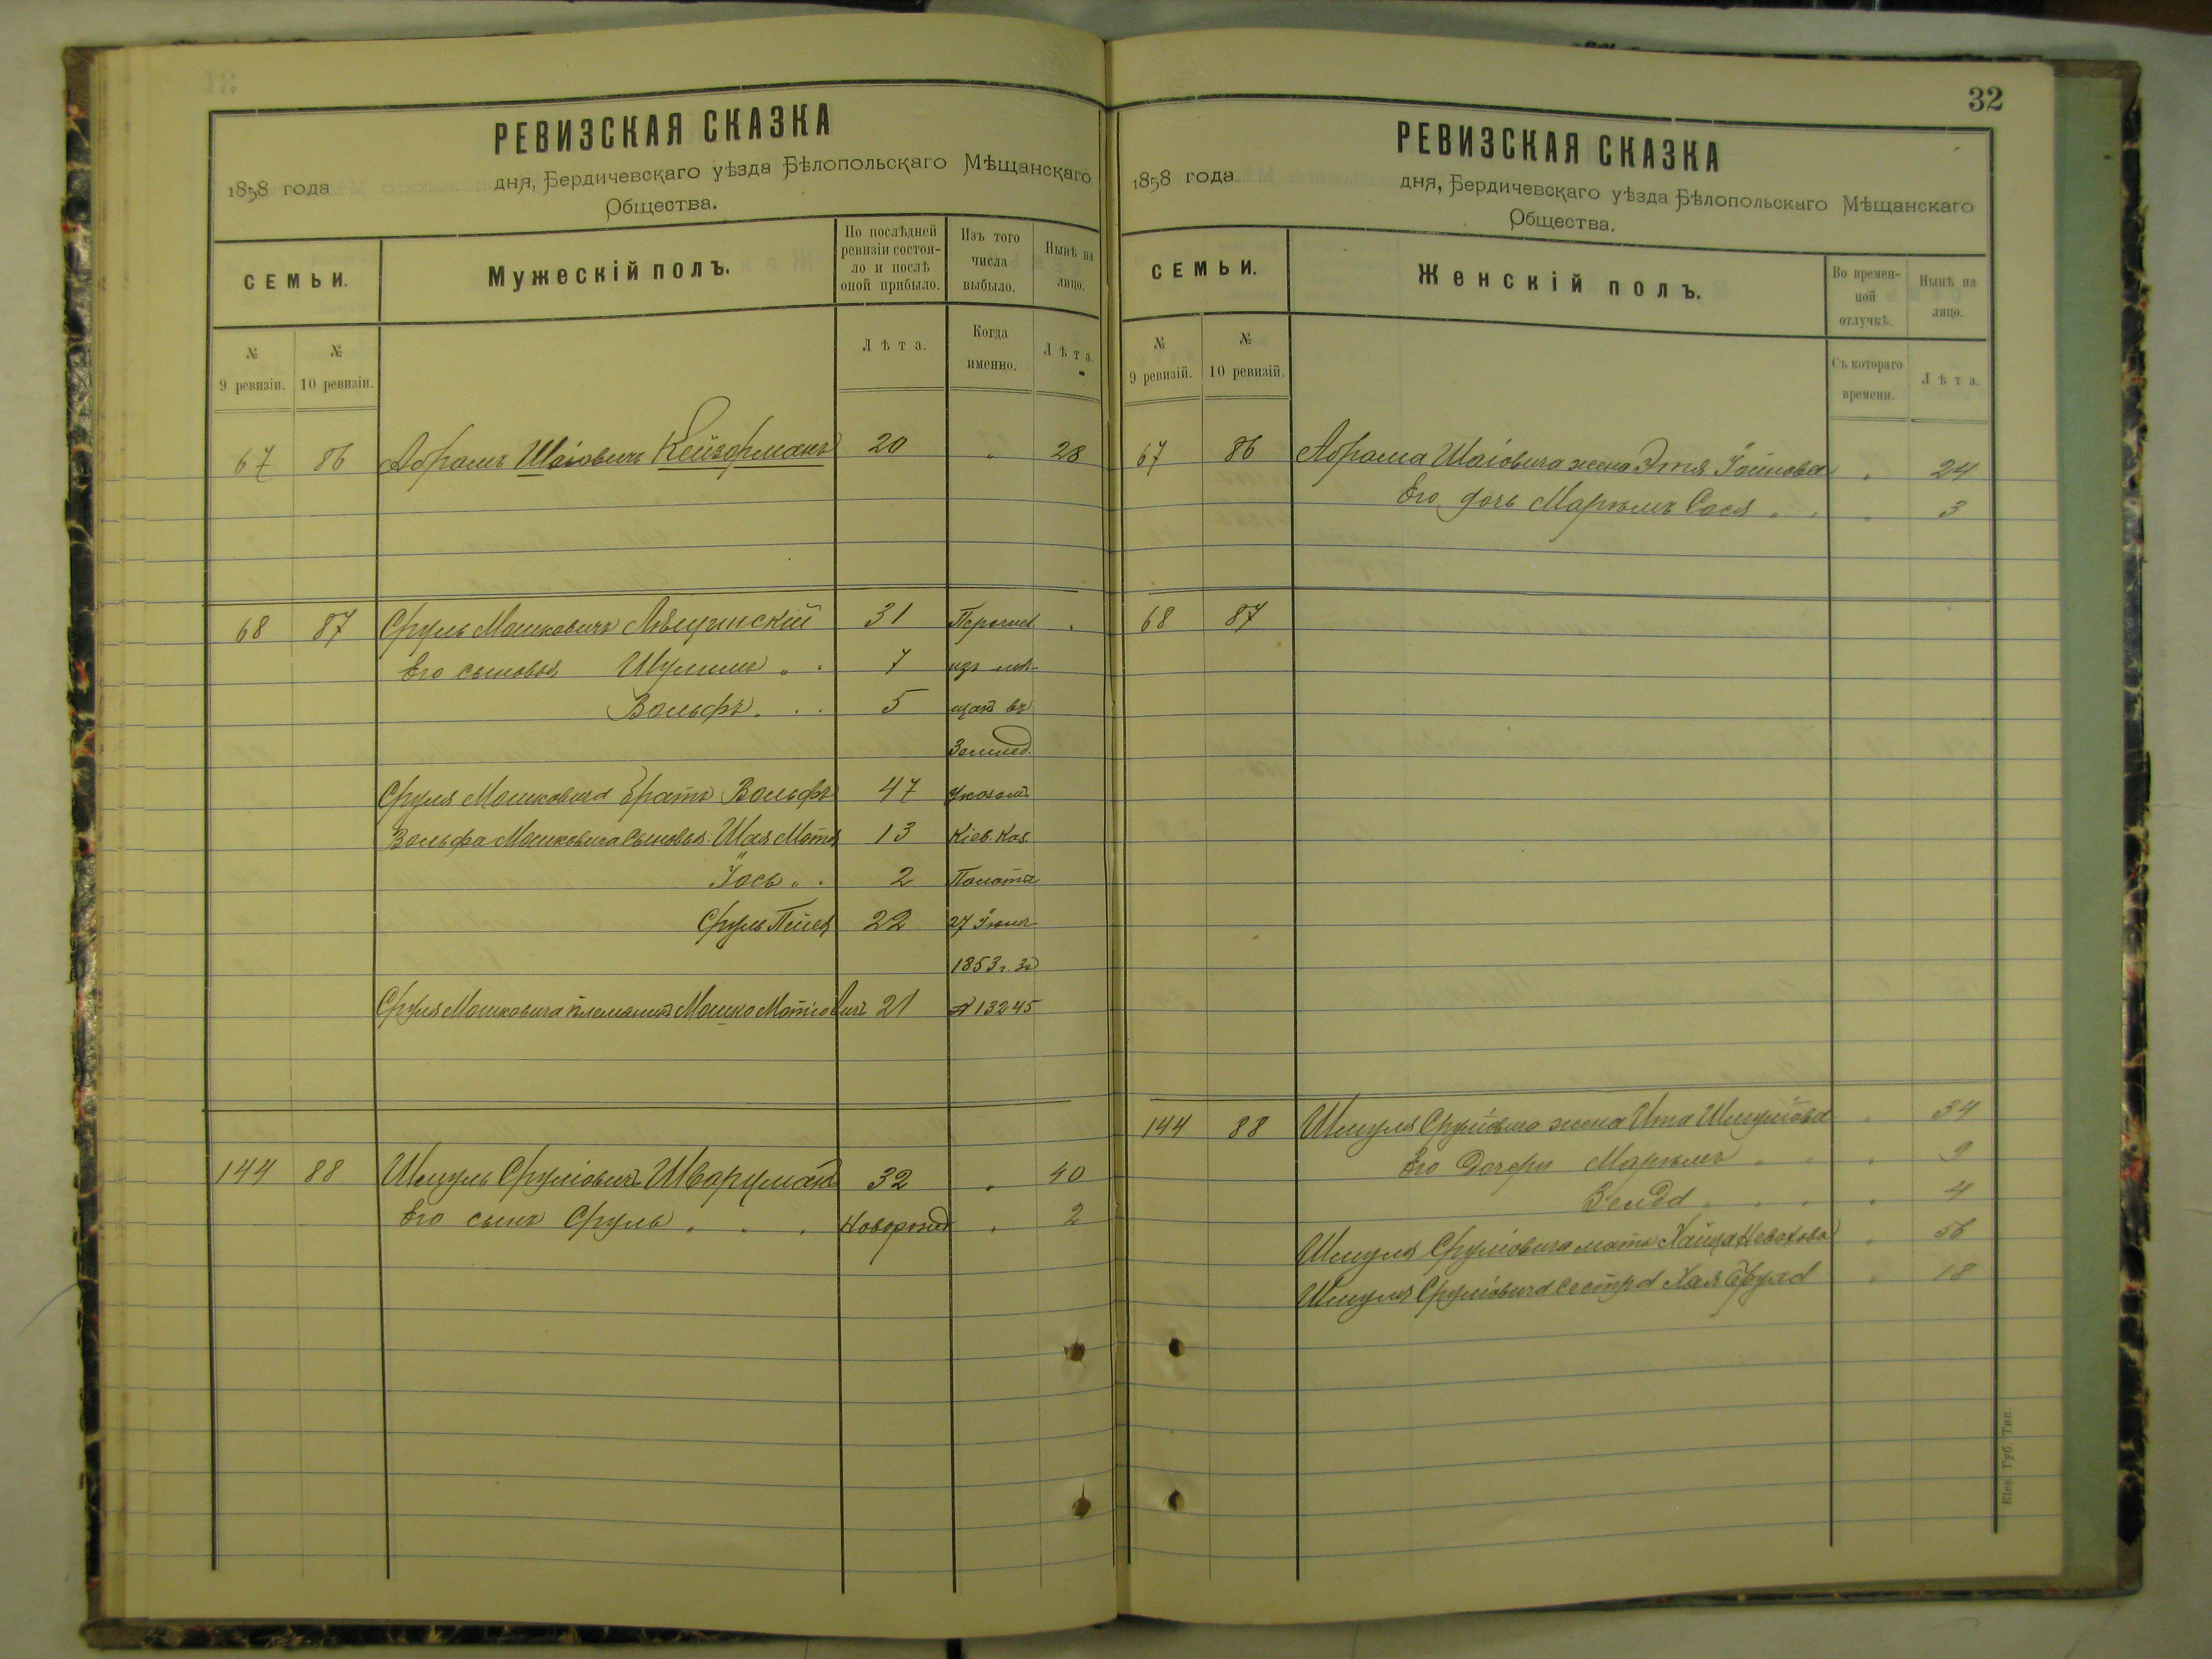 РЕВИЗСКАЯ СКАЗКА
1858 года дня, Бердичевскаго уѣзда Бѣлопольскаго Мѣщанскаго
Общества.
СЕМЬИ.
Мужескій полъ.
По послѣдней ревизіи состояло и послѣ оной прибыло.
Изъ того числа выбыло.
Нынѣ на лицо.
№ 9 ревизіи.
№ 10 ревизіи.
Лѣта.
Когда именно.
Лѣта.
67 86 Абрамъ Шаіовичъ Кейзерманъ 20 " 28
68 87 Сруль Мошковичъ Лѣщинскій 31 Перечисл "
Его сыновья Шулимъ " . 7 изъ мѣ-
Вольфъ . . . 5 щанъ въ
Землед.
Сруля Мошковича братъ Вольфъ 47 Указомъ
Вольфа Мошковича сыновья: Шая Мотя 13 Кіев. Каз.
Іось " . 2 Палаты
Сруль 22 27 Іюня
1853 г. за
Сруля Мошковича племянникъ Мошко Мотіовичъ 21 № 13245
144 88 Шмуль Сруліовичъ Шварцманъ 32 " 40
Его сынъ Сруль . . . Новорожд " 2
32
РЕВИЗСКАЯ СКАЗКА
1858 года дня, Бердичевскаго уѣзда Бѣлопольскаго Мѣщанскаго
Общества.
СЕМЬИ.
Женскій полъ.
Во временной отлучкѣ.
Нынѣ на лицо.
№ 9 ревизій.
№ 10 ревизій.
Съ котораго времени.
Лѣта.
67 86 Абрама Шаіовича жена Этя " 24
Его дочь Маріамъ Сося " . " 3
68 87
144 88 Шмуля Сруліовича жена Ита Шмуліова " 34
Его дочери Маріамъ " . " 9
Зелда " . . " 4
Шмуля Сруліовича мать " 56
Шмуля Сруліовича сестра Хая " 18
Кіев. Губ. Тип.